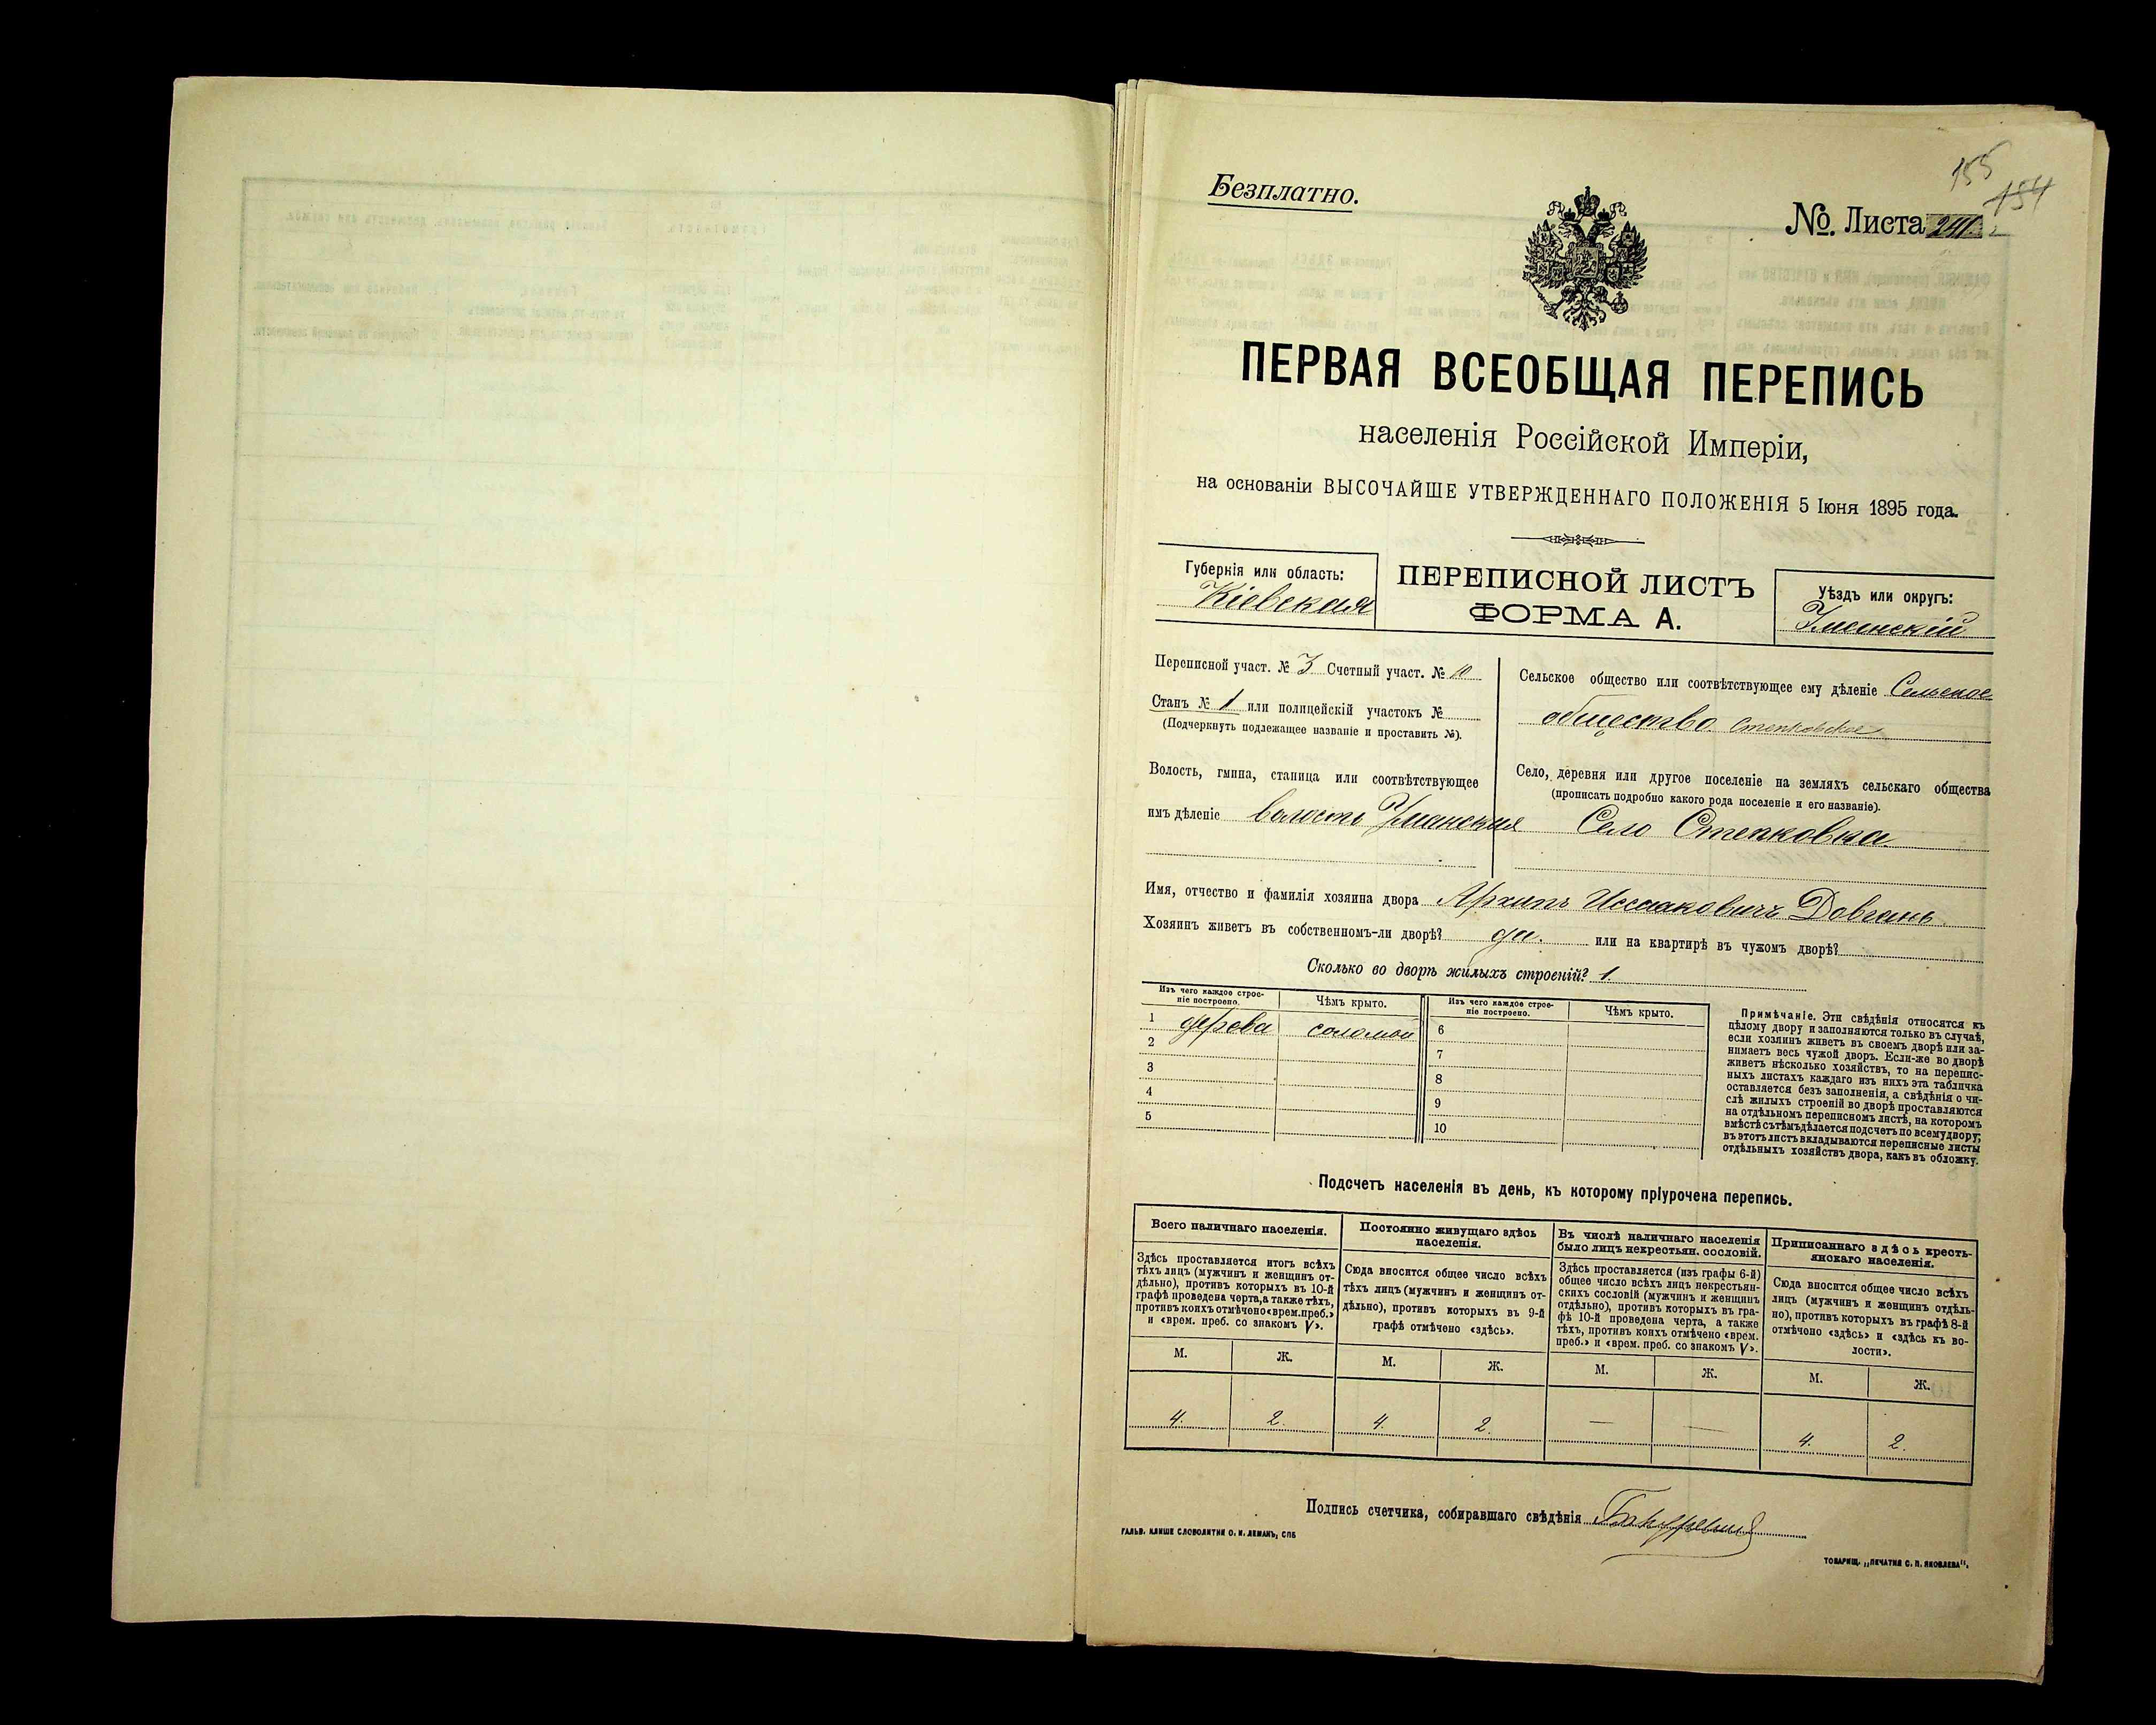 155
154
Безплатно.
№. Листа 241
ПЕРВАЯ ВСЕОБЩАЯ ПЕРЕПИСЬ
населенія Россійской Имперіи,
на основаніи ВЫСОЧАЙШЕ УТВЕРЖДЕННАГО ПОЛОЖЕНІЯ 5 Іюня 1895 года.
Губернія или область:
Кіевская
ПЕРЕПИСНОЙ ЛИСТЪ
ФОРМА А.
Уѣздъ или округъ:
Уманскій
Переписной участ. № 3 Счетный участ. № 10
Станъ № 1 или полицейскій участокъ №
(Подчеркнуть подлежащее названіе и проставить №).
Волость, гмина, станица или соотвѣтствующее
имъ дѣленіе волость Уманская
Сельское общество или соотвѣтствующее ему дѣленіе Сельское
общество Степковское
Село, деревня или другое поселеніе на земляхъ сельскаго общества
(прописать подробно какого рода поселеніе и его названіе).
Село Степковка
Имя, отчество и фамилія хозяина двора Архипъ Иссаковичъ Довгань.
Хозяинъ живетъ въ собственномъ-ли дворѣ? да. или на квартирѣ въ чужомъ дворѣ?
Сколько во дворѣ жилыхъ строеній? 1.
Изъ чего каждое строе-
ніе построено.
Чѣмъ крыто.
Изъ чего каждое строе-
ніе построено.
Чѣмъ крыто.
1 дерева соломой 6
2 7
3 8
4 9
5 10
Примѣчаніе. Эти свѣдѣнія относятся къ
цѣлому двору и заполняются только въ случаѣ,
если хозяинъ живетъ въ своемъ дворѣ или за-
нимаетъ весь чужой дворъ. Если-же во дворѣ
живетъ нѣсколько хозяйствъ, то на перепис-
ныхъ листахъ каждаго изъ нихъ эта табличка
оставляется безъ заполненія, а свѣдѣнія о чи-
слѣ жилыхъ строеній во дворѣ проставляются
на отдѣльномъ переписномъ листѣ, на которомъ
вмѣстѣ съ тѣмъ дѣлается подсчетъ по всему двору;
въ этотъ листъ вкладываются переписные листы
отдѣльныхъ хозяйствъ двора, какъ въ обложку.
Подсчетъ населенія въ день, къ которому пріурочена перепись.
Всего наличнаго населенія.
Здѣсь проставляется итогъ всѣхъ
тѣхъ лицъ (мужчинъ и женщинъ от-
дѣльно), противъ которыхъ въ 10-й
графѣ проведена черта, а также тѣхъ,
противъ коихъ отмѣчено «врем. преб.»
и «врем. преб. со знакомъ V».
Постоянно живущаго здѣсь
населенія.
Сюда вносится общее число всѣхъ
тѣхъ лицъ (мужчинъ и женщинъ от-
дѣльно), противъ которыхъ въ 9-й
графѣ отмѣчено «здѣсь».
Въ числѣ наличнаго населенія
было лицъ некрестьян. сословій.
Здѣсь проставляется (изъ графы 6-й)
общее число всѣхъ лицъ некрестьян-
скихъ сословій (мужчинъ и женщинъ
отдѣльно), противъ которыхъ въ гра-
фѣ 10-й проведена черта, а также
тѣхъ, противъ коихъ отмѣчено «врем.
преб.» и «врем. преб. со знакомъ V».
Приписаннаго здѣсь кресть-
янскаго населенія.
Сюда вносится общее число всѣхъ
лицъ (мужчинъ и женщинъ отдѣль-
но), противъ которыхъ въ графѣ 8-й
отмѣчено «здѣсь» и «здѣсь къ во-
лости».
М. Ж. М. Ж. М. Ж. М. Ж.
4. 2. 4. 2. — — 4. 2.
Подпись счетчика, собиравшаго свѣдѣнія
ГАЛЬВ. КЛИШЕ СЛОВОЛИТНИ О. И. ЛЕМАНЪ, СПБ
ТОВАРИЩ. „ПЕЧАТНЯ С. П. ЯКОВЛЕВА".